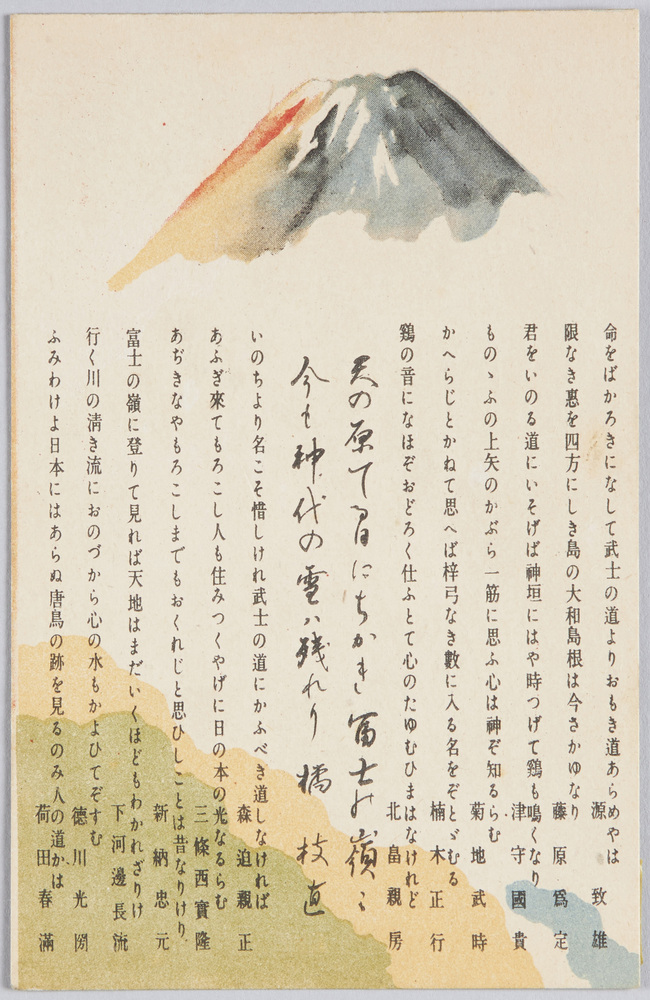 命をばかろきになして武士の道よりおもき道あらめやは
源致雄
限なき惠を四方にしき島の大和島根は今さかゆなり
藤原爲定
君をいのる道にいそげば神垣にはや時つげて鷄も鳴くなり
津守國貴
ものゝふの上矢のかぶら一筋に思ふ心は神ぞ知るらむ
菊地武時
かへらじとかねて思へば梓弓なき數に入る名をぞとゞむる
楠木正行
鷄の音になほぞおどろく仕ふとて心のたゆむひまはなけれど
北畠親房
天の原てる日にちかき富士の嶺に
今も神代の雪ハ残れり 橘枝直
いのちより名こそ惜しけれ武士の道にかふべき道しなければ
森迫親正
あふぎ來てもろこし人も住みつくやげに日の本の光なるらむ
三條西實隆
あぢきなやもろこしまでもおくれじと思ひしことは昔なりけり
新納忠元
富士の嶺に登りて見れば天地はまだいくほどもわかれざりけ
下河邊長流
行く川の淸き流におのづから心の水もかよひてぞすむ
德川光圀
ふみわけよ日本にはあらぬ唐鳥の跡を見るのみ人の道かは
荷田春滿